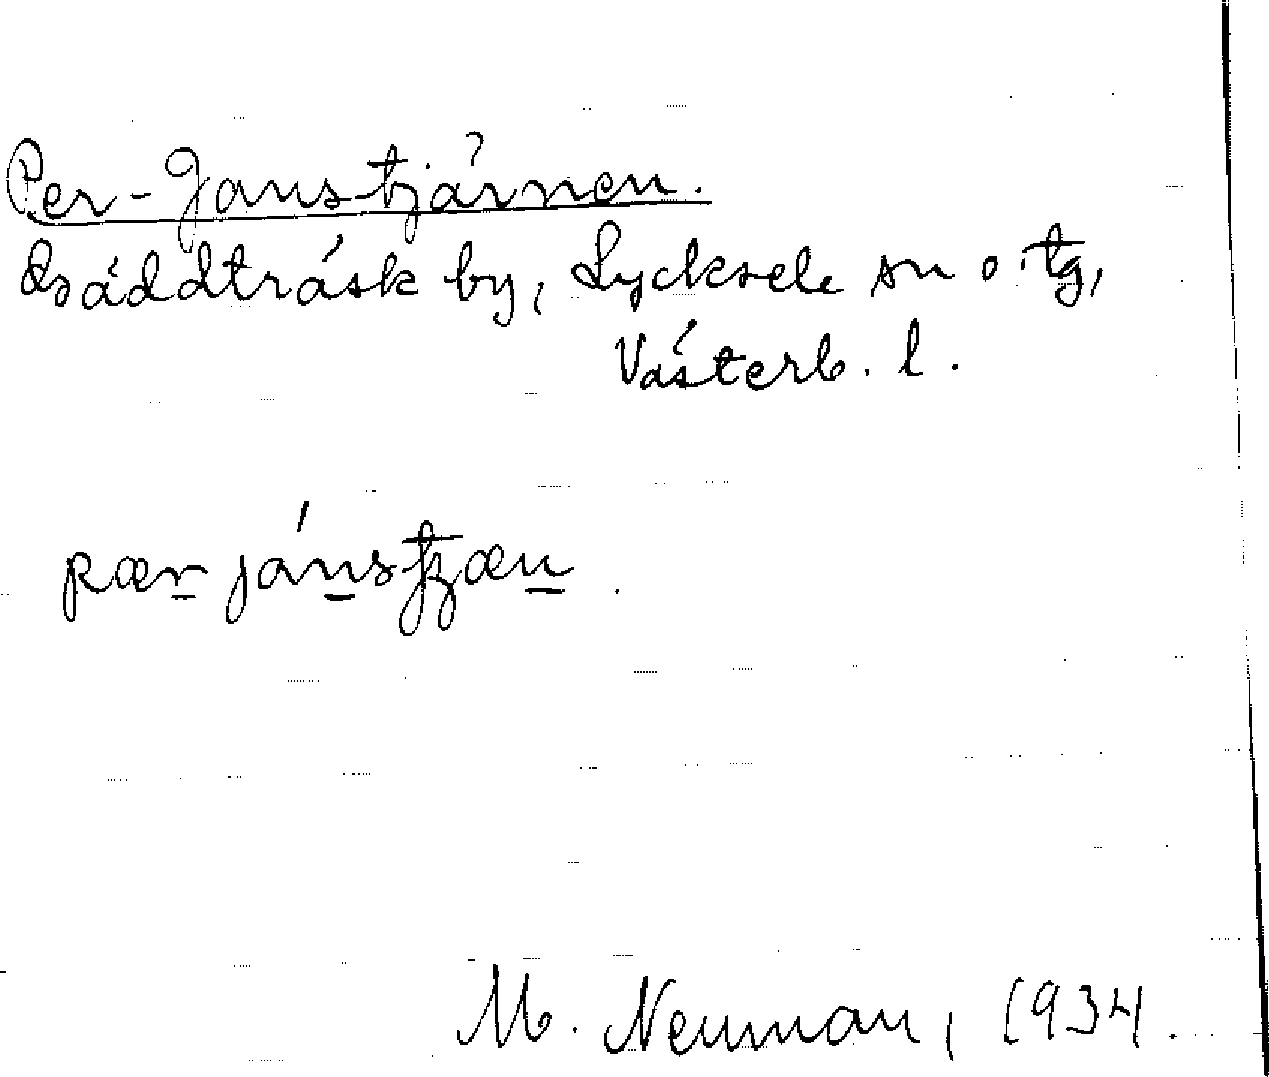 Per-Janstjärnen.
Bäddträsk by, Lycksele sn o. tg,
Västerb. l.
pær jánstȷæn.
M. Neuman, 1934.